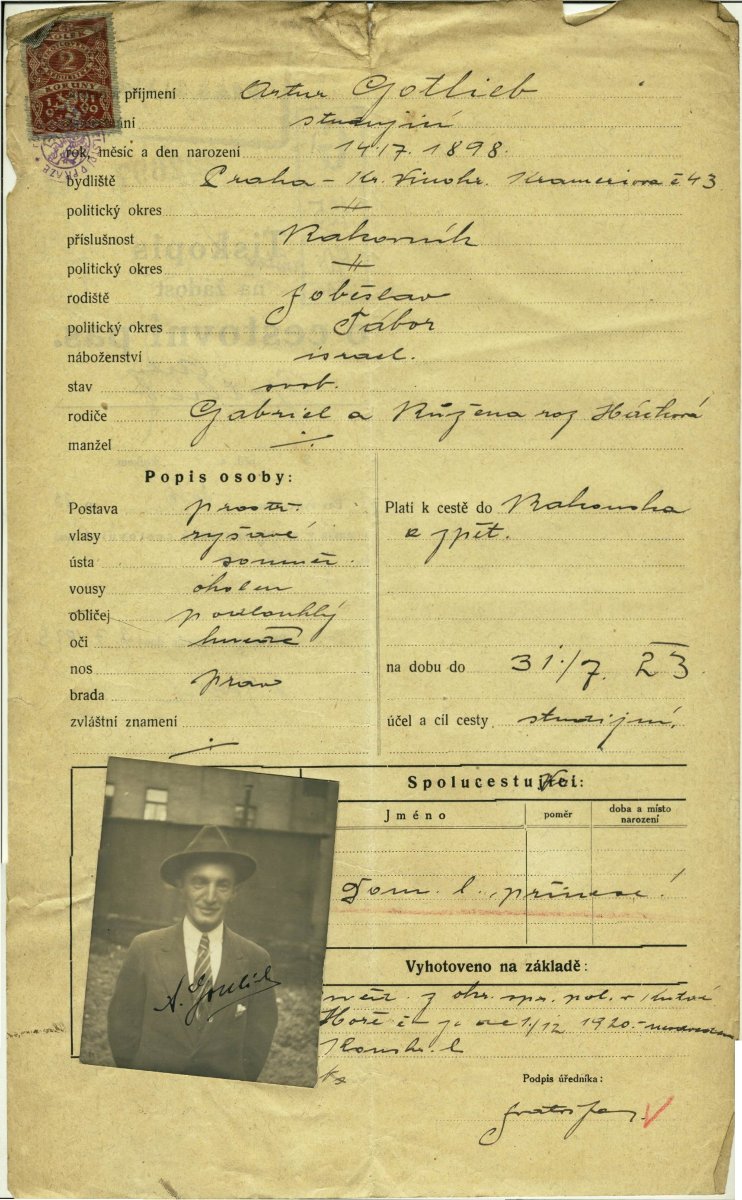 KOLEK
2
KORUNY
příjmení Artur Gotlieb
studující
rok, měsíc a den narození 14.7. 1898.
bydliště Praha - Kr. Vinohr. Krameriova č 43
politický okres -//-
příslušnost Rakovník
politický okres -//-
rodiště Soběslav
politický okres Tábor
náboženství israel.
stav svob.
rodiče Gabriel a Růžena roz
manžel ·/·
Popis osoby:
Postava prostř.
vlasy ryšavé
ústa souměr.
vousy oholen
obličej podlouhlý
oči hnědé
nos
brada prav
zvláštní znamení
·/·
Platí k cestě do Rakouska
a zpět.
na dobu do 31./7. 23
účel a cíl cesty studijní.
Spolucestující:
Jméno
poměr
doba a místo narození
Dom. l. přinese!
A. Gottlieb
Vyhotoveno na základě:
z okr. spr. pol. v Kutné
Hoře č ze dne 1./12 1920.-
Podpis úředníka: